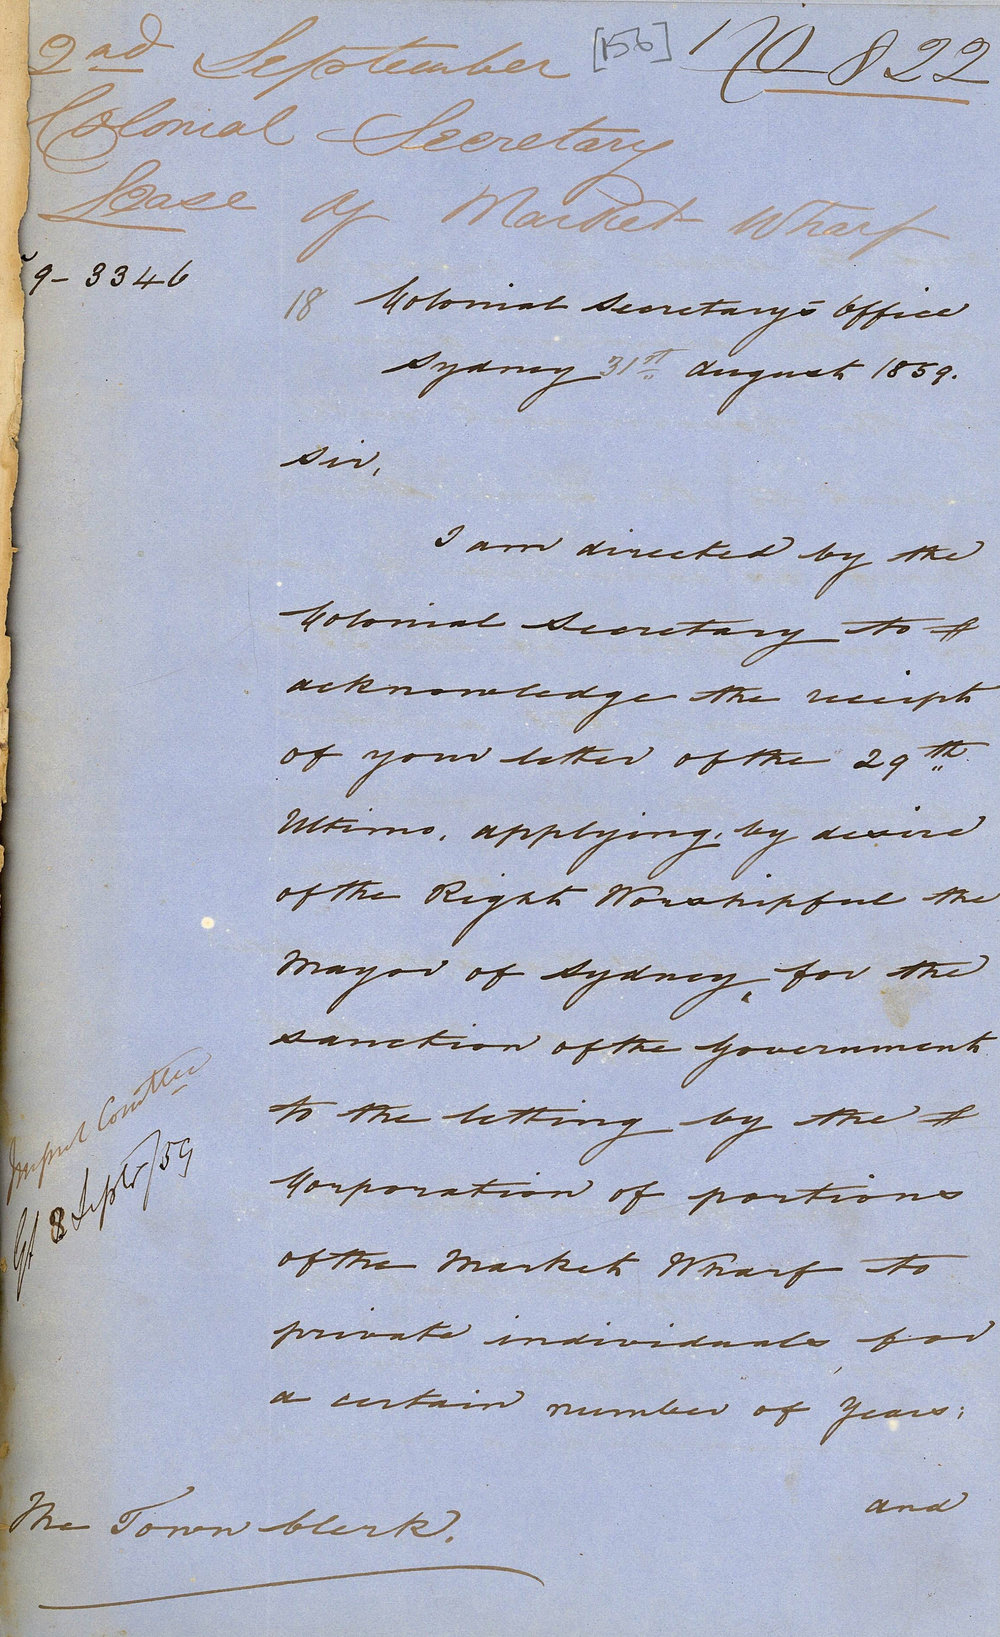 2nd September [156] No 822
Colonial Secretary
Lease of Market Wharf
9-3346
18 Colonial Secretary's Office
Sydney 31st August 1859.
Sir,
I am directed by the
Colonial Secretary to
acknowledge the receipt
of your letter of the 29th
Ultimo, applying, by desire
of the Right Worshipful the
Mayor of Sydney, for the
sanction of the Government
to the letting by the
Corporation of portions
of the Market Wharf to
private individuals for
a certain number of Years;
and
Improt Comttee
8 Septr/59
The Town Clerk.